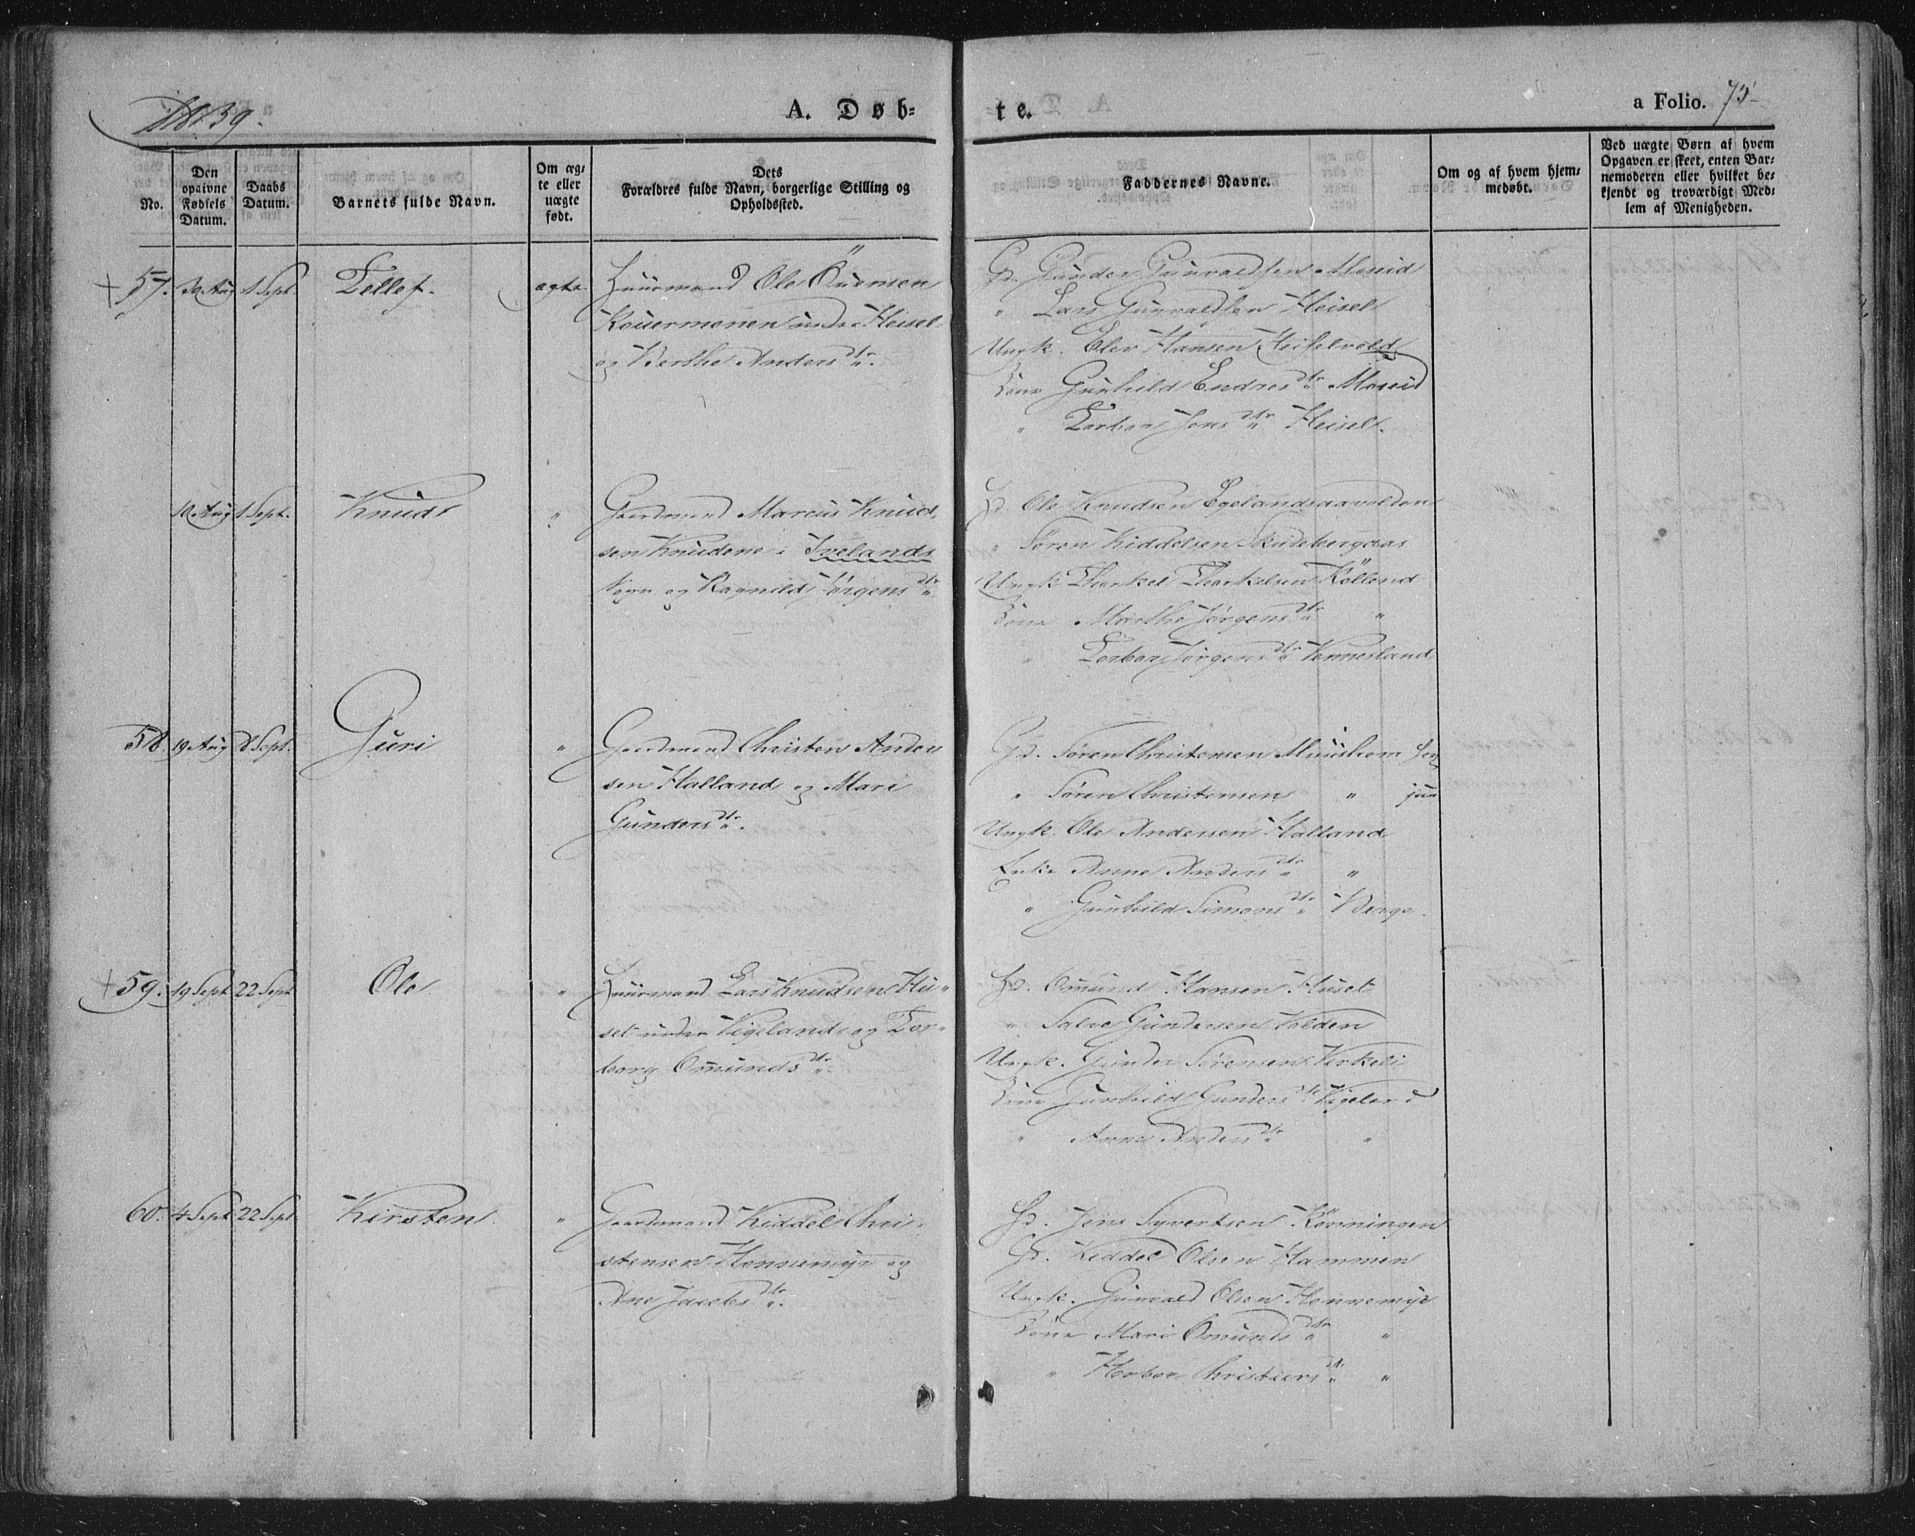 1839.
A. Døb-
te.
a Folio. 75
No.
Den opaivne Fødsels Datum.
Daabs Datum.
Barnets fulde Navn.
Om ægte eller uægte født.
Dets Forældres fulde Navn, borgerlige Stilling og Opholdssted.
Faddernes Navne.
Om og af hvem hjemmedøbt.
Ved uægte Børn af hvem Opgaven er skeet, enten Barnemoderen eller hvilket bekjendt og troværdigt Medlem af Menigheden.
57. 30 Aug 1 Sept. Tellef. ægte.
Huusmand Ole
under Heisel
og Berthe Anders dtr.
Gd. Gunder Gunvaldsen Moseid
" Lars Gunvaldsen Heisel
Ungk. Olev Hansen Heiselvold
Kone Gunhild Endres dtr Moseid
" Torbor Jons dtr Heisel.
10 Aug 1 Sept. Knud "
Gaardmand Marcus Knud
sen Knudene i Ivelands
Sogn og Ragnild Jørgens dtr.
Gd. Ole Knudsen
" Søren Kiddelsen
Ungk Thorkel Thorkelsen
Kone Marthe Jørgens dtr "
" Torbor Jørgens dtr Vennesland
58. 19 Aug 8 Sept. Guri "
Gaardmand Christen Anders
sen Halland og Mari
Gunders dtr.
Gd. Søren Christensen Muushom sen
" Søren Christensen " jun
Ungk. Ole Andersen Halland
Enke Anne Anders dtr "
" Gunhild Simons dtr Berge.
59. 19 Sept 22 Sept Ole "
Huusmand Lars Knudsen Hu-
set under Vigeland og Tor-
borg Omunds dtr.
Gd. Omund Hansen Huset
" Salve Gundersen Volden
Ungk. Gunder Sørensen Verkeli
Kone Gunhild Gunders dtr Vigeland
" Anne Anders dtr "
60. 4 Sept 22 Sept Kirsten. "
Gaardmand Kiddel Chri-
stensen Honnemyr og
Ane Jacobs dtr.
Gd. Jens Syvertsen
Gd. Kiddel Olsen Hammen
Ungk. Gunvald Olsen Honnemyr
Kone Mari Omunds dtr "
" Horbor Christens dtr "